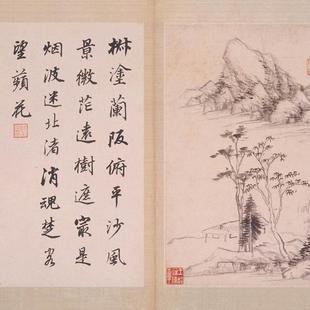 椒塗蘭阪俯平沙風
景微茫遠樹遮最是
烟波迷北渚消魂楚客
望蘋花